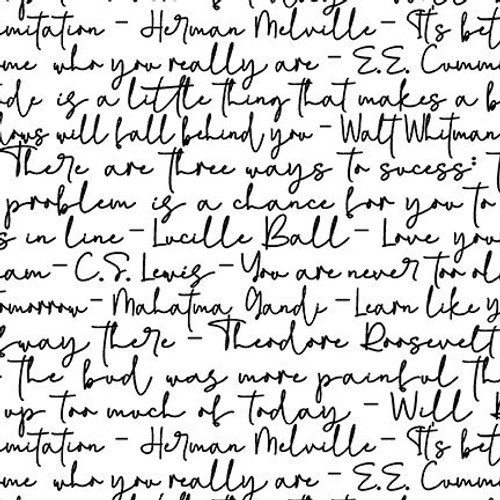 mitation - Herman Melville - It's bet
ome who you really are - E.E. Cumm
de is a little thing that makes a b
dows will fall behind you - Walt Whitman
There are three ways to sucess:
problem is a chance for you to
s in line - Lucille Ball - Love you
eam - C.S. Lewis - You are never too ol
omorrow - Mahatma Gandi - Learn like y
sway there - Theodore Roosevelt
the bud was more painful th
up too much of today - Will
mitation - Herman Melville - It's bet
ome who you really are - E.E. Cumm